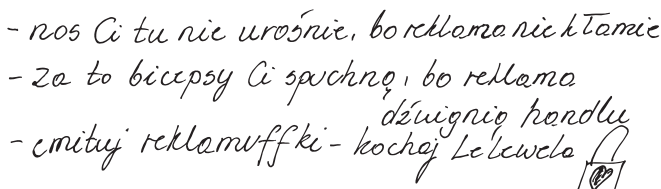 - nos Ci tu nie urośnie, bo reklama nie kłamie
- za to bicepsy Ci spuchną, bo reklama
dźwignią handlu
- emituj reklamuffki - kochaj Lelewela